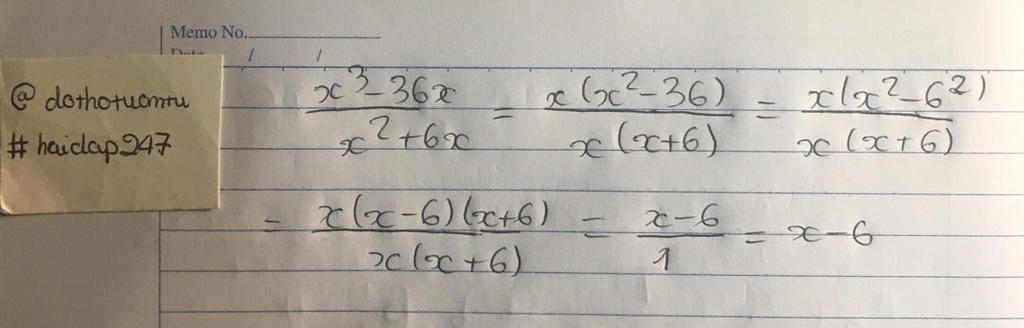 Memo No.
Date / /
@ dothotuomtu
# haidap247
x³-36x / x²+6x = x(x²-36) / x(x+6) = x(x²-6²) / x(x+6)
= x(x-6)(x+6) / x(x+6) = x-6 / 1 = x-6